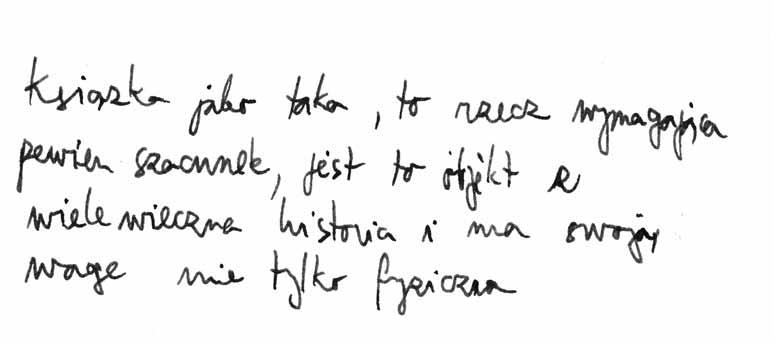 Książka jako taka, to rzecz wymagająca
pewien szacunek, jest to objekt z
wiele wieczna historia i ma swoją
wage nie tylko fyziczna